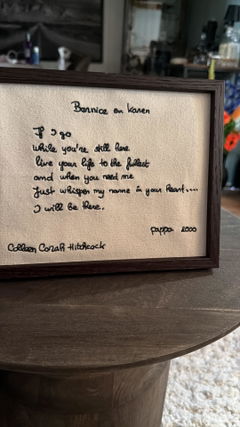 Bernice en Karen
If I go
while you're still here
live your life to the fullest
and when you need me
just whisper my name in your heart....
I will be there.
pappa 2000
Colleen Corah Hitchcock